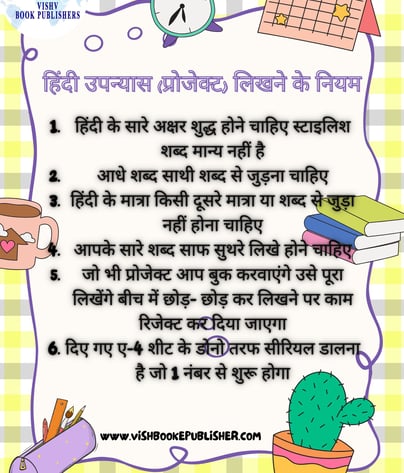 VISHV
BOOK PUBLISHERS
हिंदी उपन्यास (प्रोजेक्ट) लिखने के नियम
1. हिंदी के सारे अक्षर शुद्ध होने चाहिए स्टाइलिश
शब्द मान्य नहीं है
2. आधे शब्द साथी शब्द से जुड़ना चाहिए
3. हिंदी के मात्रा किसी दूसरे मात्रा या शब्द से जुड़ा
नहीं होना चाहिए
4. आपके सारे शब्द साफ सुथरे लिखे होने चाहिए
5. जो भी प्रोजेक्ट आप बुक करवाएंगे उसे पूरा
लिखेंगे बीच में छोड़- छोड़ कर लिखने पर काम
रिजेक्ट कर दिया जाएगा
6. दिए गए ए-4 शीट के दोनो तरफ सीरियल डालना
है जो 1 नंबर से शुरू होगा
www.vishbookEpublisher.com